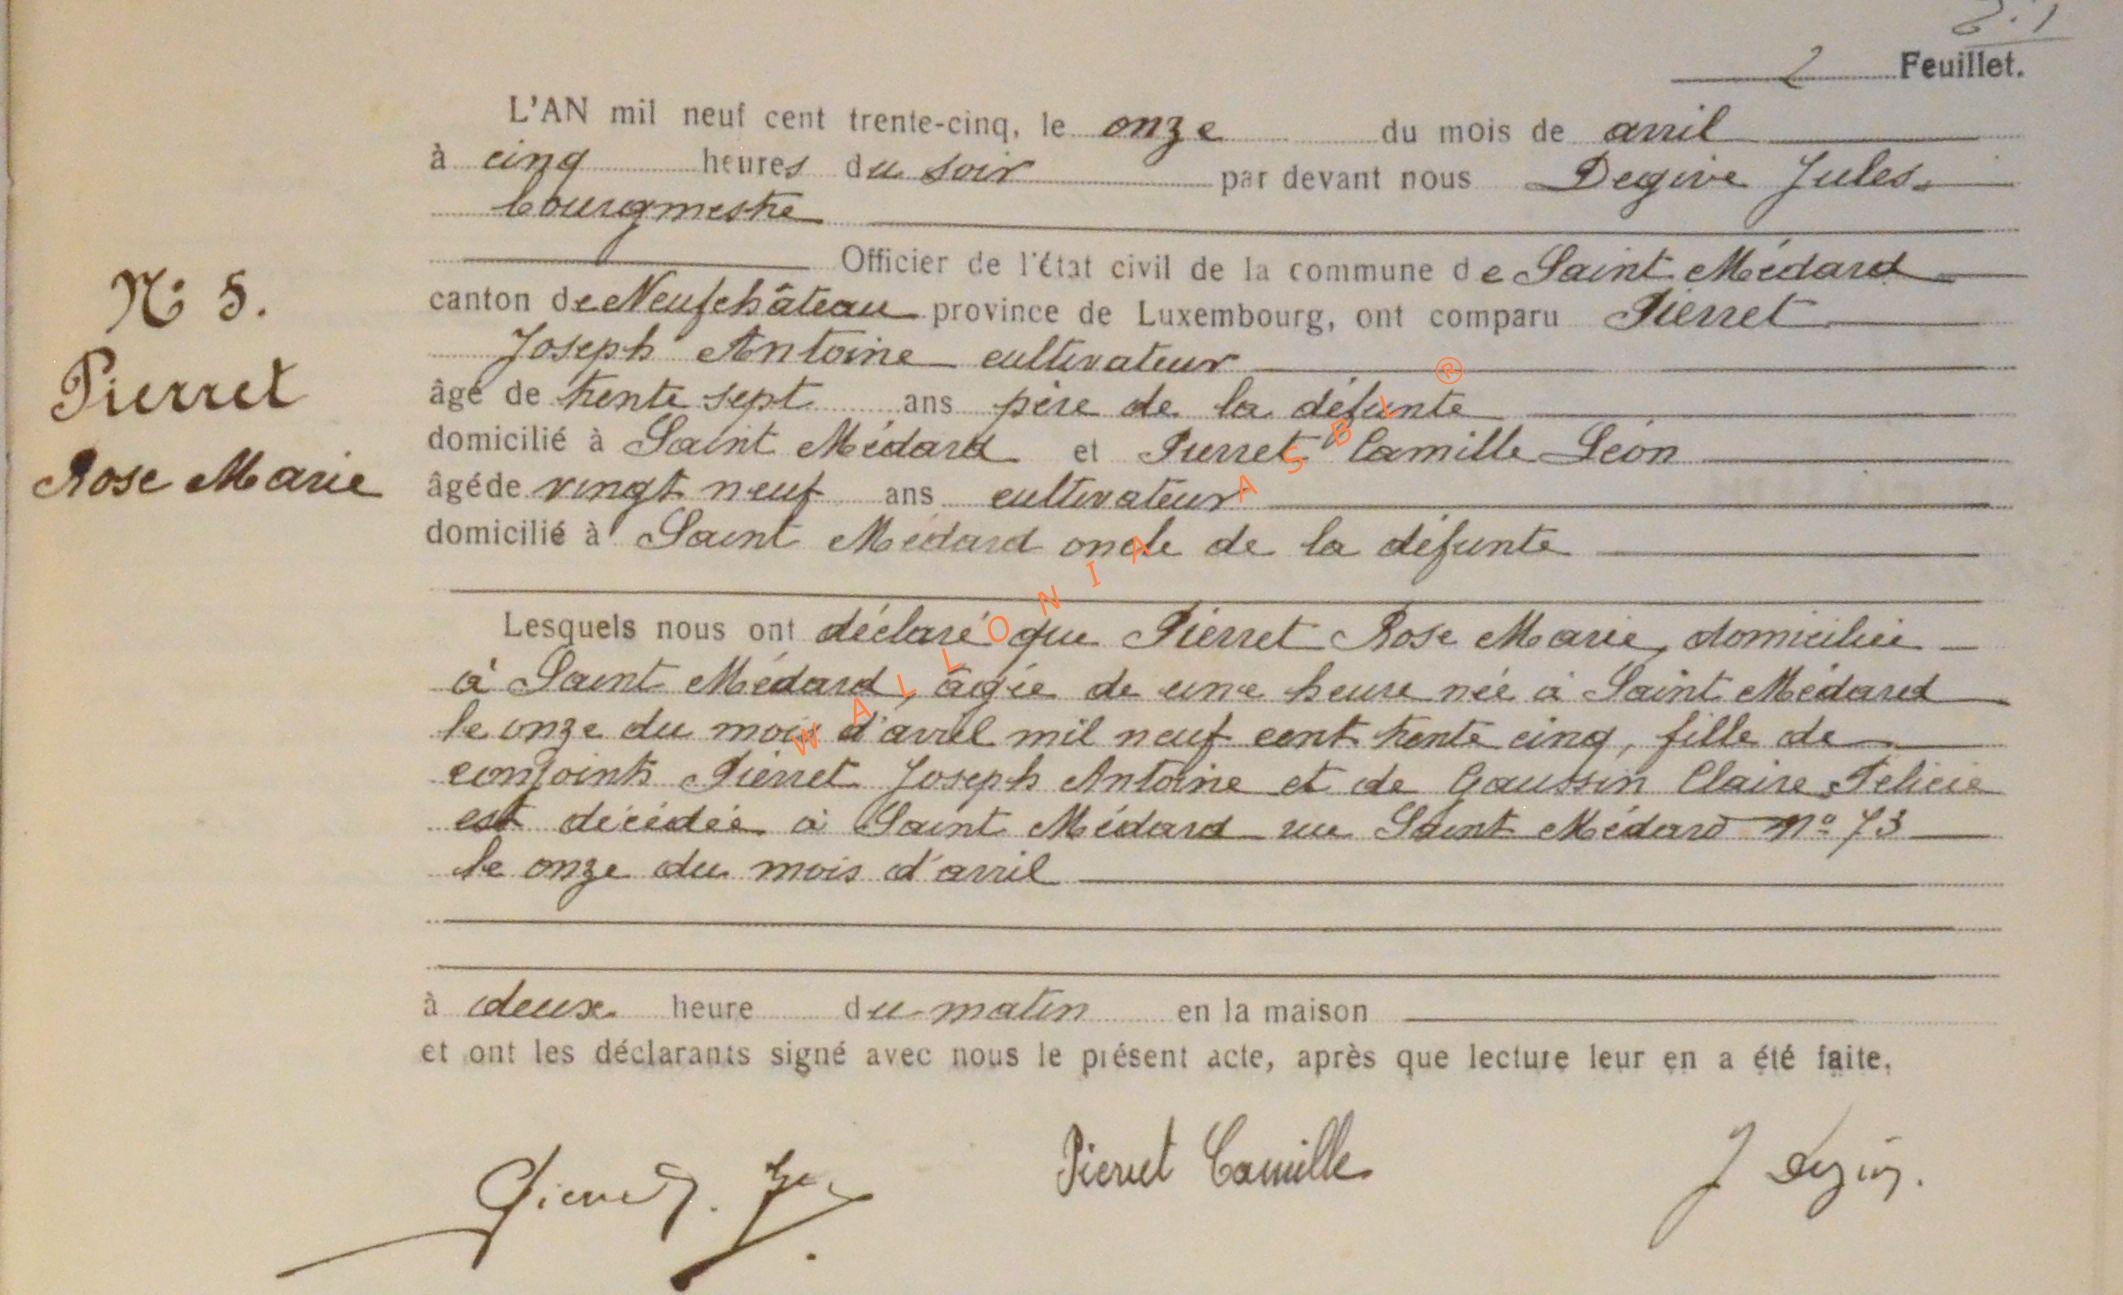 2 Feuillet.
L'AN mil neuf cent trente-cinq, le onze du mois de avril
à cinq heures du soir par devant nous Degive Jules
bourgmestre
Officier de l'état civil de la commune de Saint Médard
canton de Neufchâteau province de Luxembourg, ont comparu Pierret
Joseph Antoine cultivateur
âgé de trente sept ans père de la défunte
domicilié à Saint Médard et Pierret Camille Léon
âgé de vingt neuf ans cultivateur
domicilié à Saint Médard oncle de la défunte
N° 5.
Pierret
Rose Marie
Lesquels nous ont déclaré que Pierret Rose Marie, domiciliée
à Saint Médard, âgée de une heure née à Saint Médard
le onze du mois d'avril mil neuf cent trente cinq, fille de
conjoints Pierret Joseph Antoine et de Gaussin Claire Félicie
est décédée à Saint Médard rue Saint Médard n° 73
le onze du mois d'avril
à deux heure du matin en la maison
et ont les déclarants signé avec nous le présent acte, après que lecture leur en a été faite.
Pierret Camille
WALLONIA ASBL ®